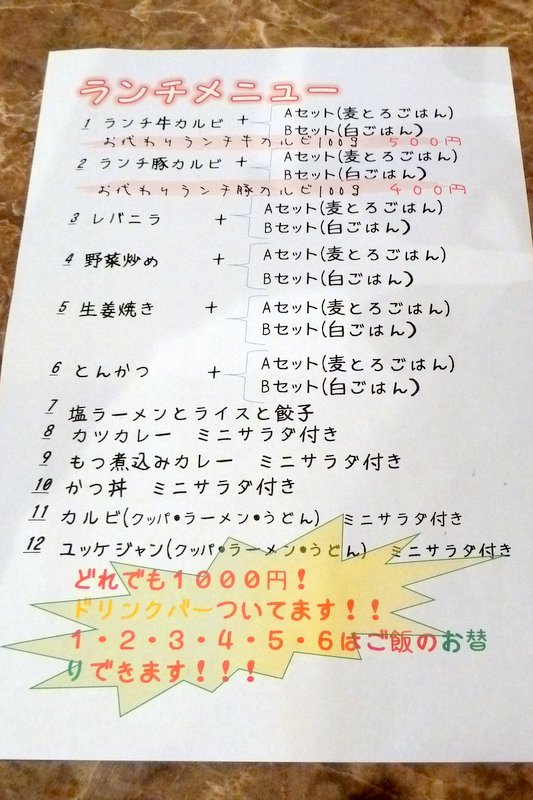 ランチメニュー
1 ランチ牛カルビ + Aセット(麦とろごはん)
Bセット(白ごはん)
お代わりランチ牛カルビ100g 500円
2 ランチ豚カルビ + Aセット(麦とろごはん)
Bセット(白ごはん)
お代わりランチ豚カルビ100g 400円
3 レバニラ + Aセット(麦とろごはん)
Bセット(白ごはん)
4 野菜炒め + Aセット(麦とろごはん)
Bセット(白ごはん)
5 生姜焼き + Aセット(麦とろごはん)
Bセット(白ごはん)
6 とんかつ + Aセット(麦とろごはん)
Bセット(白ごはん)
7 塩ラーメンとライスと餃子
8 カツカレー ミニサラダ付き
9 もつ煮込みカレー ミニサラダ付き
10 かつ丼 ミニサラダ付き
11 カルビ(クッパ•ラーメン•うどん) ミニサラダ付き
12 ユッケジャン(クッパ•ラーメン•うどん) ミニサラダ付き
どれでも1000円!
ドリンクバーついてます!!
1・2・3・4・5・6はご飯のお替
りできます!!!